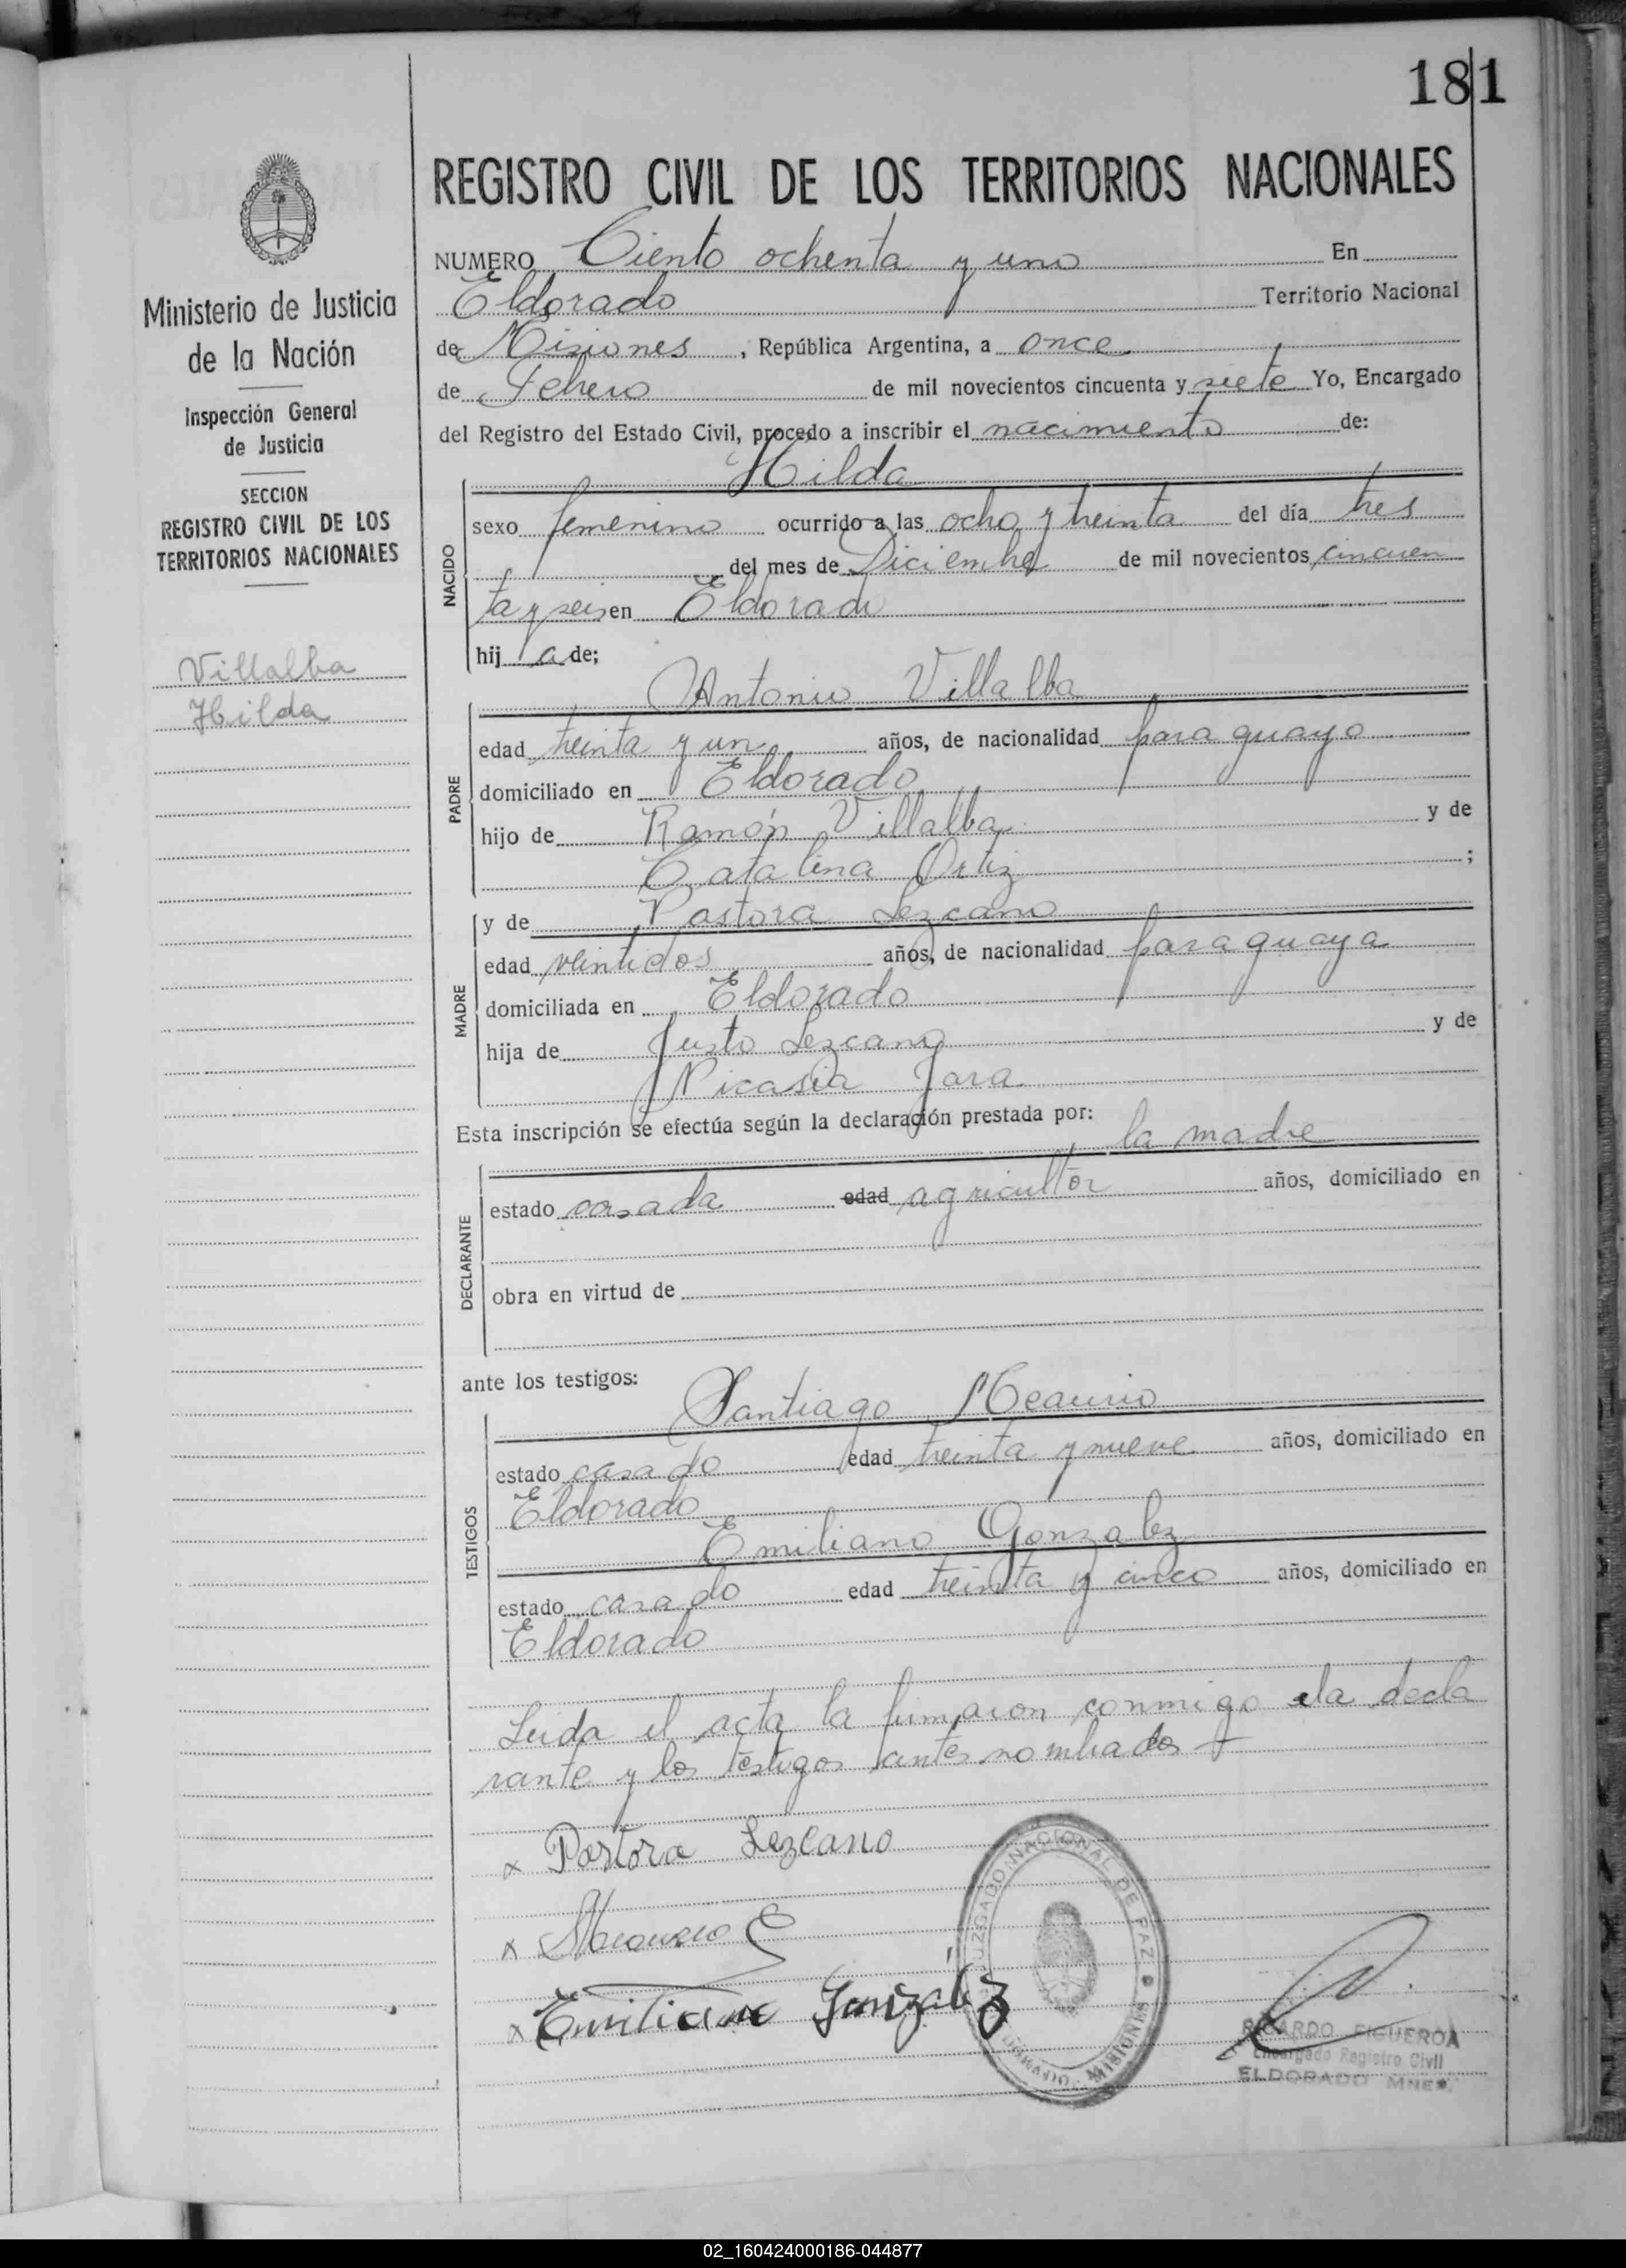 181
REGISTRO CIVIL DE LOS TERRITORIOS NACIONALES
Ministerio de Justicia
de la Nación
Inspección General
de Justicia
SECCION
REGISTRO CIVIL DE LOS
TERRITORIOS NACIONALES
Villalba
Hilda
NUMERO Ciento ochenta y uno En
Eldorado Territorio Nacional
de Misiones , República Argentina, a once
de Febrero de mil novecientos cincuenta y siete Yo, Encargado
del Registro del Estado Civil, procedo a inscribir el nacimiento de:
NACIDO
Hilda
sexo femenino ocurrido a las ocho y treinta del día tres
del mes de Diciembre de mil novecientos cincuen
ta y seis en Eldorado
hij a de;
PADRE
Antonio Villalba
edad treinta y un años, de nacionalidad paraguayo
domiciliado en Eldorado
hijo de Ramón Villalba y de
Catalina Ortiz ;
MADRE
y de Pastora Lezcano
edad veintidos años, de nacionalidad paraguaya
domiciliada en Eldorado
hija de Justo Lezcano y de
Nicasia Jara
Esta inscripción se efectúa según la declaración prestada por:
DECLARANTE
la madre
estado casada edad agricultor años, domiciliado en
obra en virtud de
ante los testigos:
TESTIGOS
Santiago Meaurio
estado casado edad treinta y nueve años, domiciliado en
Eldorado
Emiliano Gonzalez
estado casado edad treinta y cinco años, domiciliado en
Eldorado
Leida el acta la firmaron conmigo la decla
rante y los testigos antes nombrados
x Pastora Lezcano
x
x Emiliano Gonzalez
JUZGADO NACIONAL DE PAZ
MISIONES
RICARDO FIGUEROA
Encargado Registro Civil
ELDORADO MNES.
02_160424000186-044877